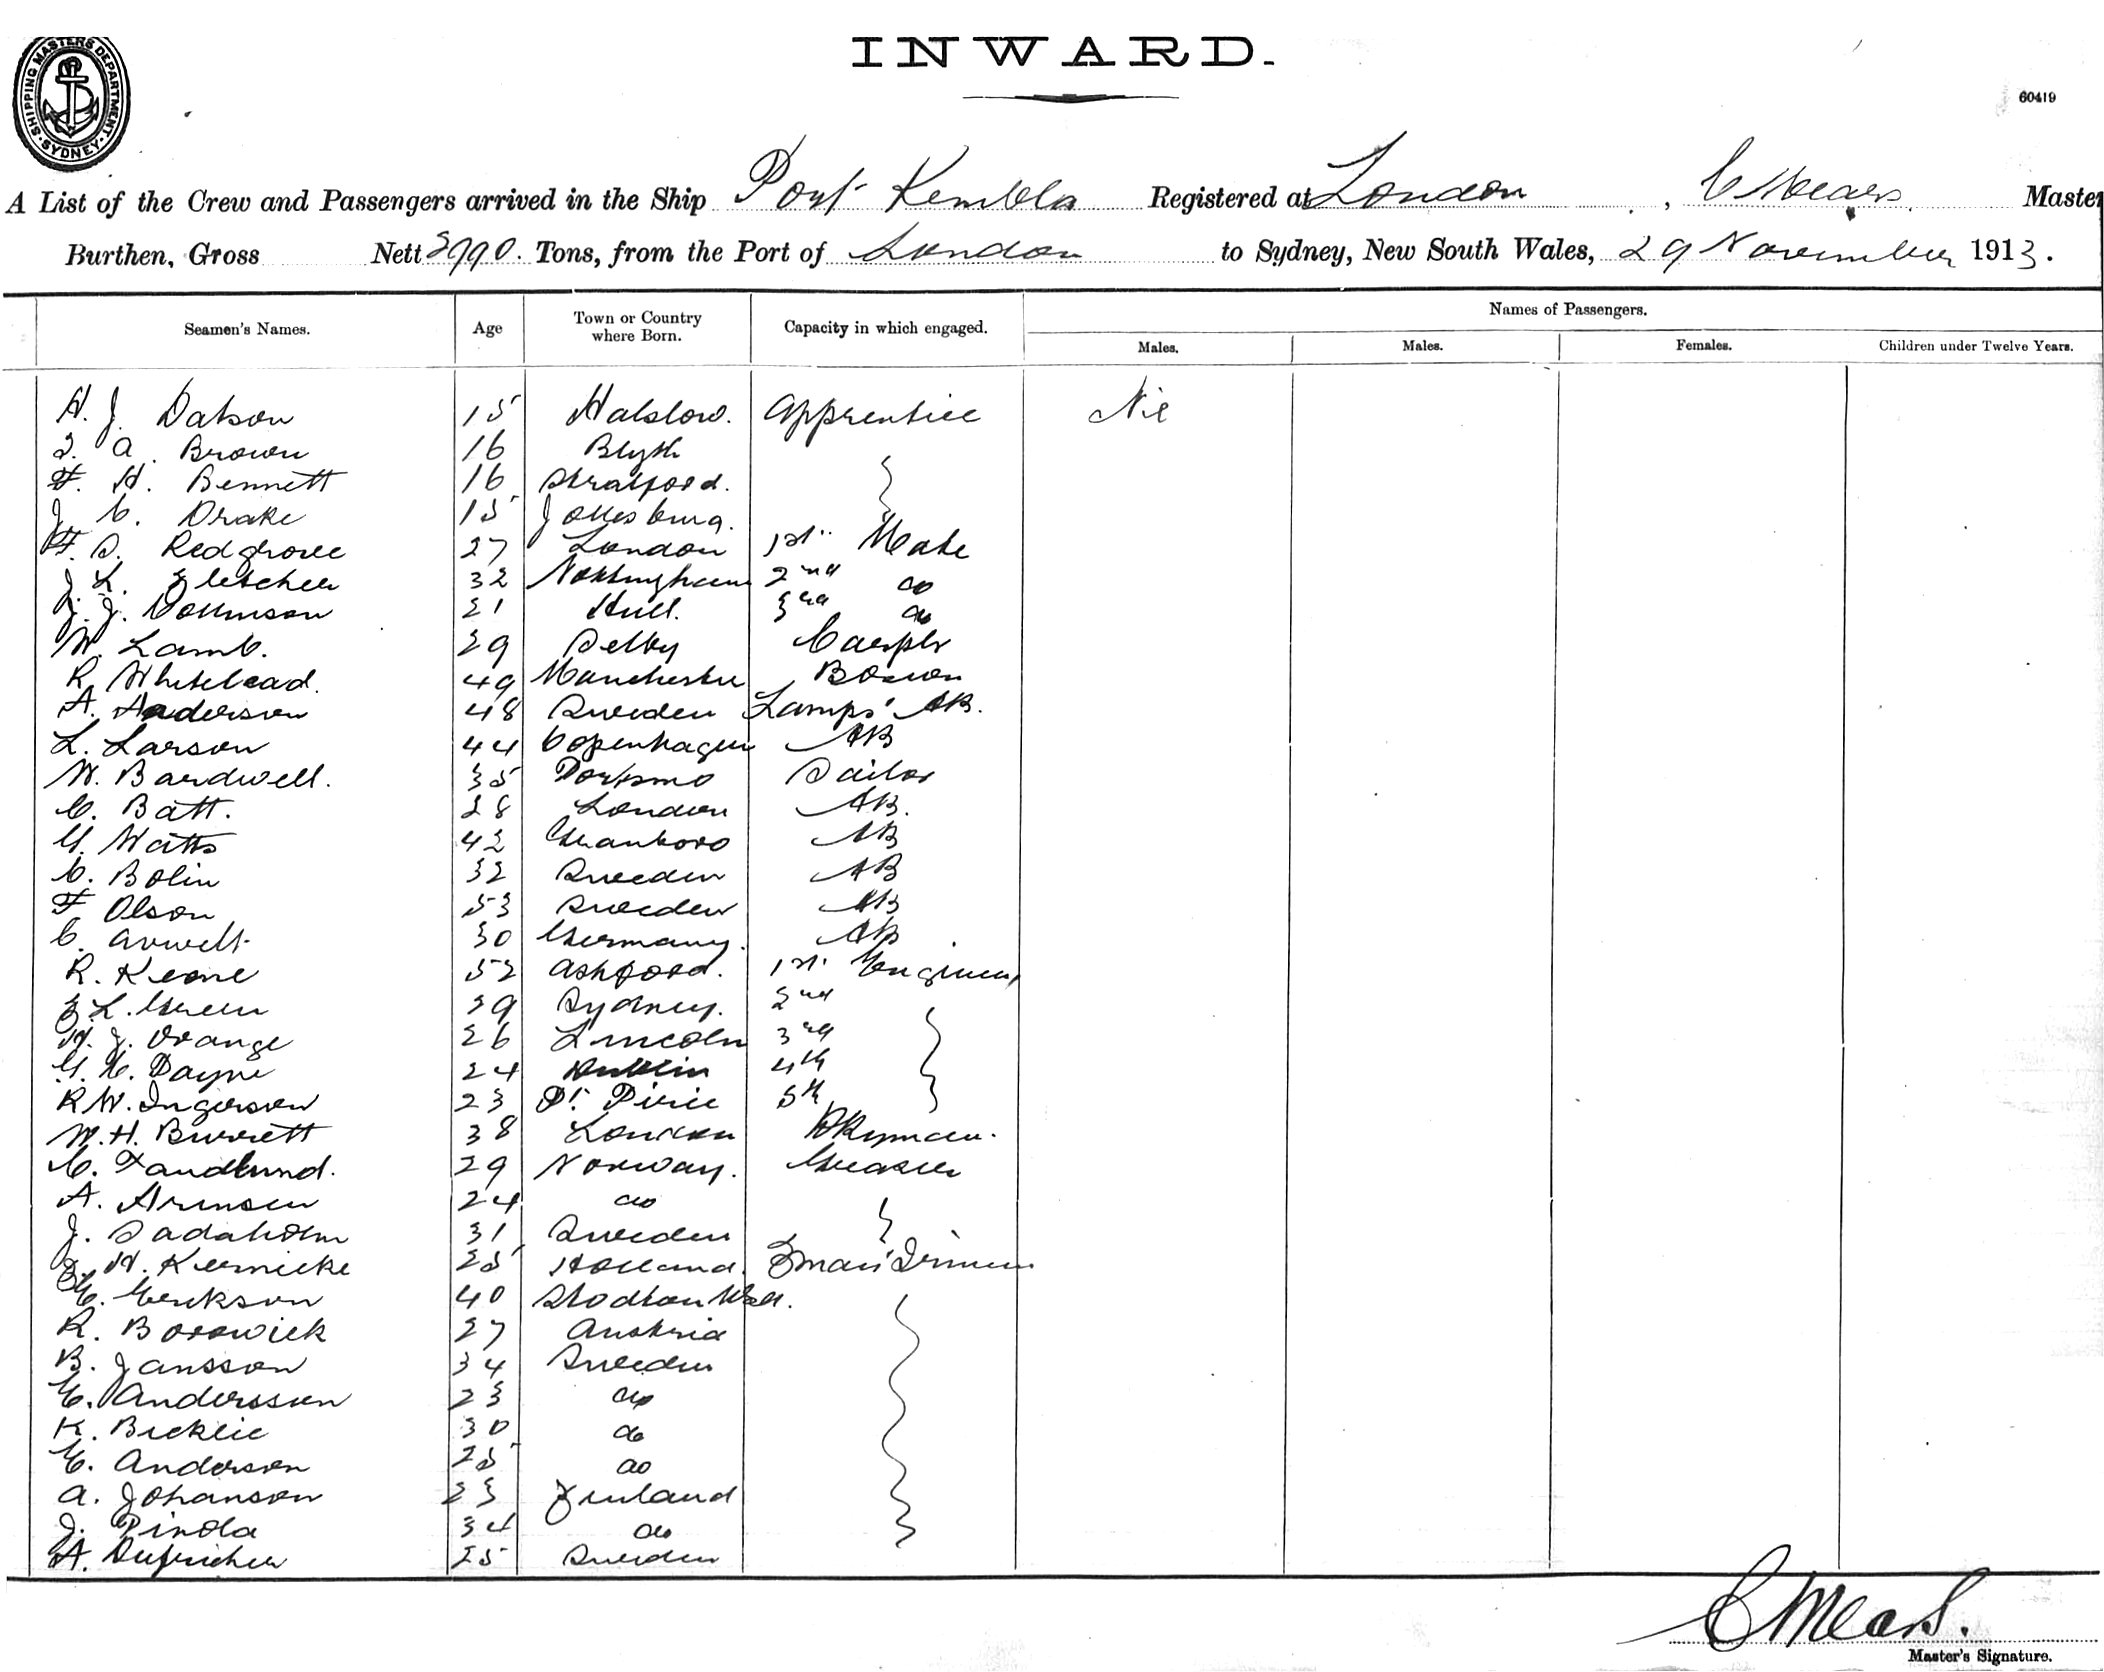 INWARD.
SHIPPING MASTERS DEPARTMENT · SYDNEY ·
60419
A List of the Crew and Passengers arrived in the Ship Port Kembla Registered at London, C Mears Master
Burthen, Gross Nett Tons, from the Port of London to Sydney, New South Wales, 29 November 1913.
Seamen's Names. Age Town or Country where Born. Capacity in which engaged. Names of Passengers.
Males. Males. Females. Children under Twelve Years.
H. J. Datson 15 Halslow. Apprentice Nil
A. Brown 16 Blyth
F. H. Bennett 16 Stratford.
J. C. Drake 15 Johesburg.
F. S. Redgrove 27 London 1st Mate
J. L. Fletcher 32 Nottingham 2nd do
J. 21 Hull. 3rd do
W. Lamb. 29 Selby Carptr
R. Whitehead. 49 Manchester Bosun
A. Anderson 48 Sweden Lamps AB.
L. Larson 44 Copenhagen AB
W. Bardwell. 35 Portsmo Sailor
C. Batt. 28 London AB.
G. Watts 42 AB
C. Bolin 32 Sweden AB
F Olson 53 Sweden AB
C. 30 Germany. AB
R. Keone 52 Ashford. 1st Engineer
F. L. Green 39 Sydney. 2nd
H. J. Orange 26 Lincoln 3rd
G. H. Payne 24 Dublin 4th
R W. Ingerson 23 Pt. Pirie 5th
W. H. Burrett 38 London Dkyman.
C. Fandlund. 29 Norway. Greaser
A. Arensen 24 do
J. Sadaholm 31 Sweden
H. Kernicke 25 Holland. Fman & Trimmer
E. Erikson 40
R. Borowick 27 Austria
B. Jansson 34 Sweden
E. Andersson 23 do
K. Bicklie 30 do
E. Anderson 25 do
A. Johanson 23 Finland
J. Pinola 34 do
A. 25 Sweden
C Mears.
Master's Signature.